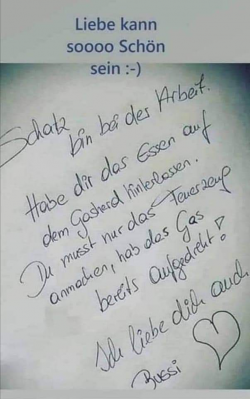 Liebe kann
soooo Schön
sein :-)
Schatz
bin bei der Arbeit.
Habe dir das Essen auf
dem Gasherd hinterlassen.
Du musst nur das Feuerzeug
anmachen, hab das Gas
bereits aufgedreht!
Ich liebe dich auch
Bussi